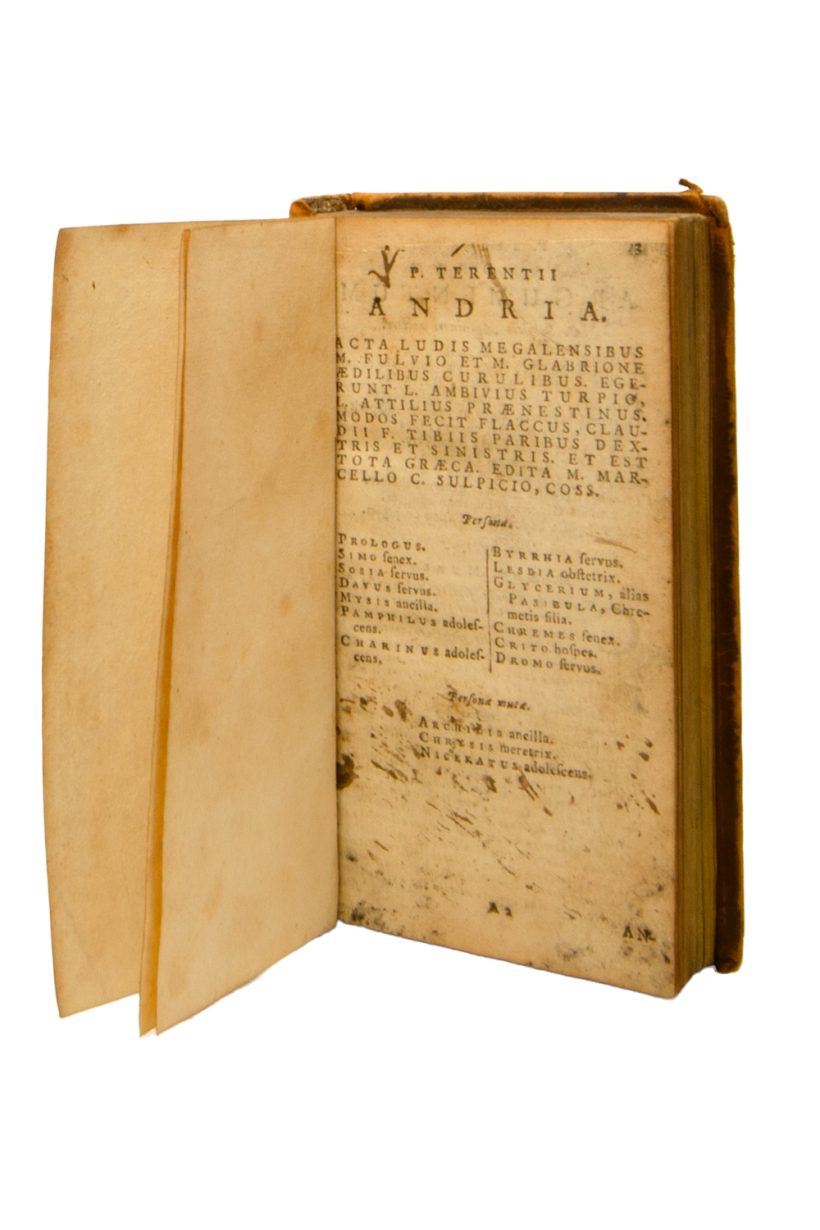 3
P. TERENTII
ANDRIA.
ACTA LUDIS MEGALENSIBUS
M. FULVIO ET M. GLABRIONE
ÆDILIBUS CURULIBUS. EGE-
RUNT L. AMBIVIUS TURPIO,
L. ATTILIUS PRÆNESTINUS.
MODOS FECIT FLACCUS, CLAU-
DII F. TIBIIS PARIBUS DEX-
TRIS ET SINISTRIS. ET EST
TOTA GRÆCA. EDITA M. MAR-
CELLO C. SULPICIO, COSS.
Perſonæ.
PROLOGUS.
SIMO ſenex.
SOSIA ſervus.
DAVUS ſervus.
MYSIS ancilla.
PAMPHILUS adoleſ-
cens.
CHARINUS adoleſ-
cens.
BYRRHIA ſervus.
LESBIA obſtetrix.
GLYCERIUM, alias
PASIBULA, Chre-
metis filia.
CHREMES ſenex.
CRITO hoſpes.
DROMO ſervus.
Perſonæ mutæ.
ARCHILIS ancilla.
CHRYSIS meretrix.
NICERATUS adoleſcens.
A 2
AN-